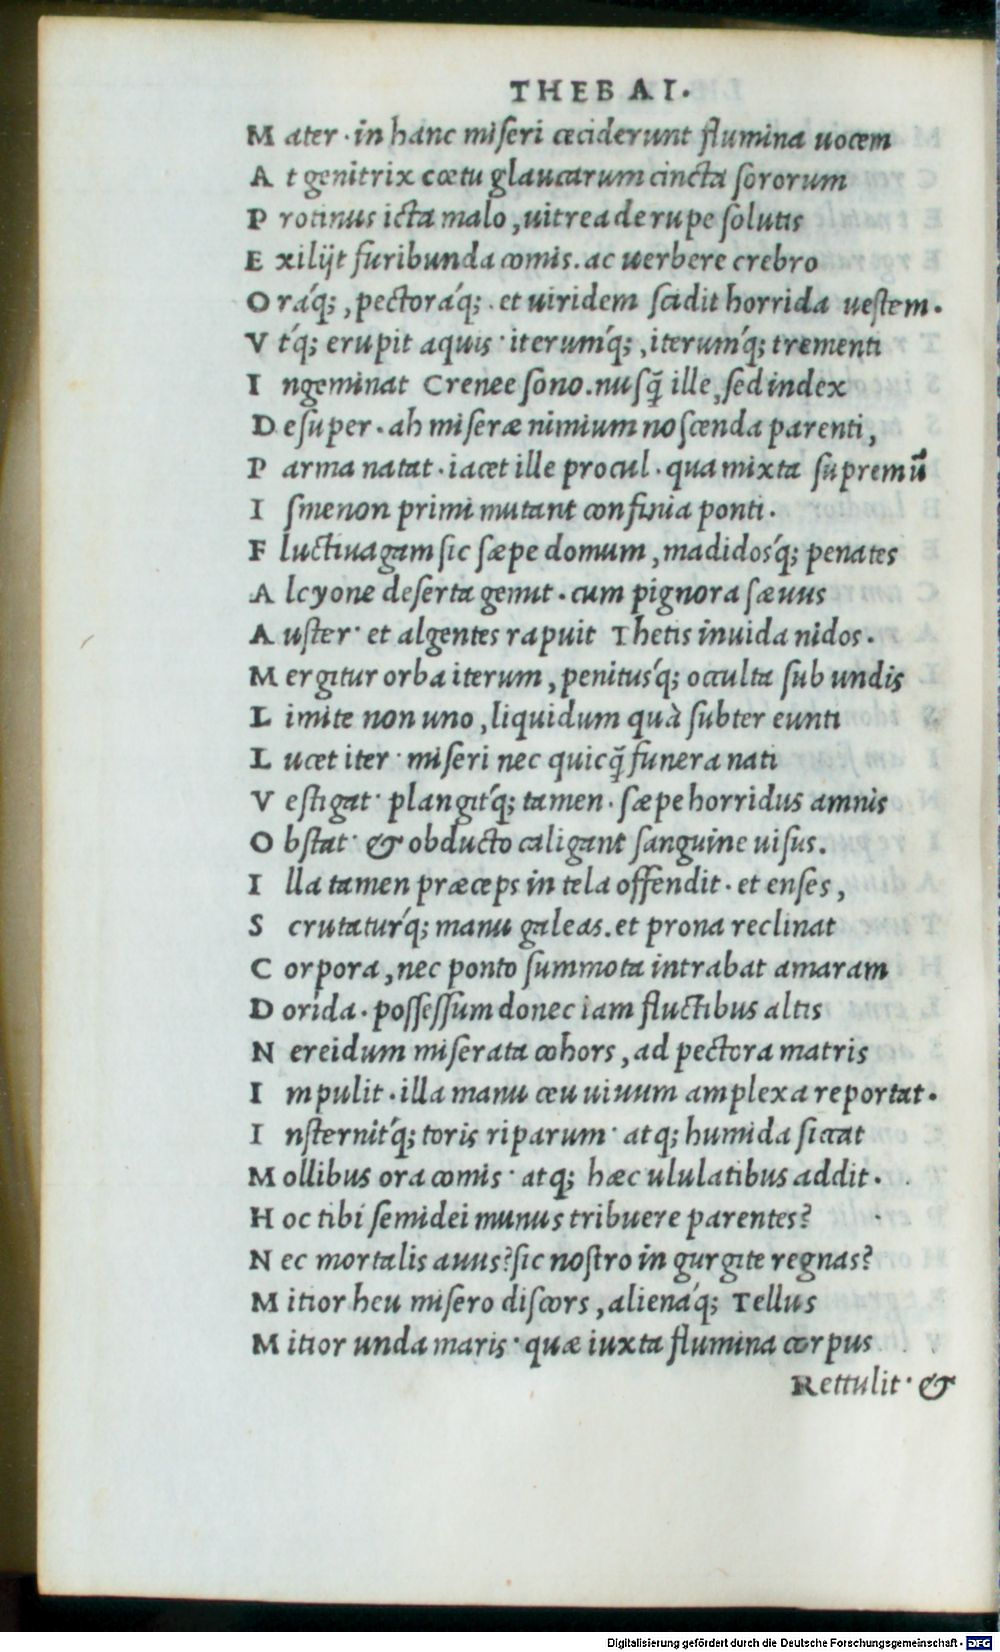 THEBAI.
M ater · in hanc miseri ceciderunt flumina uocem
A t genitrix cœtu glaucarum cincta sororum
P rotinus icta malo, uitrea de rupe solutis
E xilijt furibunda comis. ac uerbere crebro
O ráq;, pectoráq;. et uiridem scidit horrida uestem.
V t´q; erupit aquis · iterum´q;, iterum´q; trementi
I ngeminat Crenee sono. nusq̃ ille, sed index
D esuper. ah miseræ nimium noscenda parenti,
P arma natat · iacet ille procul · qua mixta supremū
I smenon primi mutant confinia ponti.
F luctiuagam sic sæpe domum, madidos´q; penates
A lcyone deserta gemit · cum pignora sæuus
A uster · et algentes rapuit Thetis inuida nidos.
M ergitur orba iterum, penitus´q; occulta sub undis
L imite non uno, liquidum quà subter eunti
L ucet iter · miseri nec quicq̃ funera nati
V estigat · plangit´q; tamen · sæpe horridus amnis
O bstat · & obducto caligant sanguine uisus.
I lla tamen præceps in tela offendit · et enses,
S crutatur´q; manu galeas. et prona reclinat
C orpora, nec ponto summota intrabat amaram
D orida · possessum donec iam fluctibus altis
N ereidum miserata cohors, ad pectora matris
I mpulit · illa manu ceu uiuum amplexa reportat.
I nsternit´q; toris riparum · atq; humida siccat
M ollibus ora comis · atq; hæc ululatibus addit.
H oc tibi semidei munus tribuere parentes?
N ec mortalis auus? sic nostro in gurgite regnas?
M itior heu misero discors, aliená´q; Tellus
M itior unda maris · quæ iuxta flumina corpus
Rettulit · &
Digitalisierung gefördert durch die Deutsche Forschungsgemeinschaft - DFG